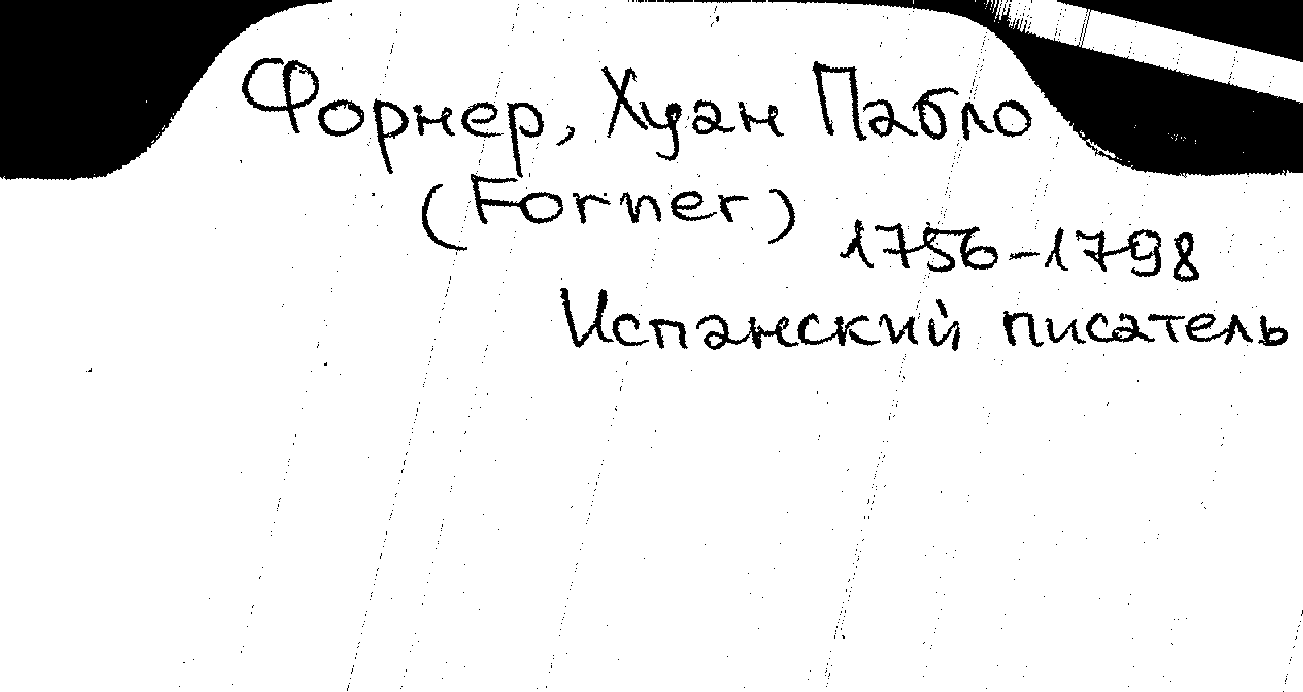 Форнер, Хуан Пабло
(Forner)
1756-1798
Испанский писатель